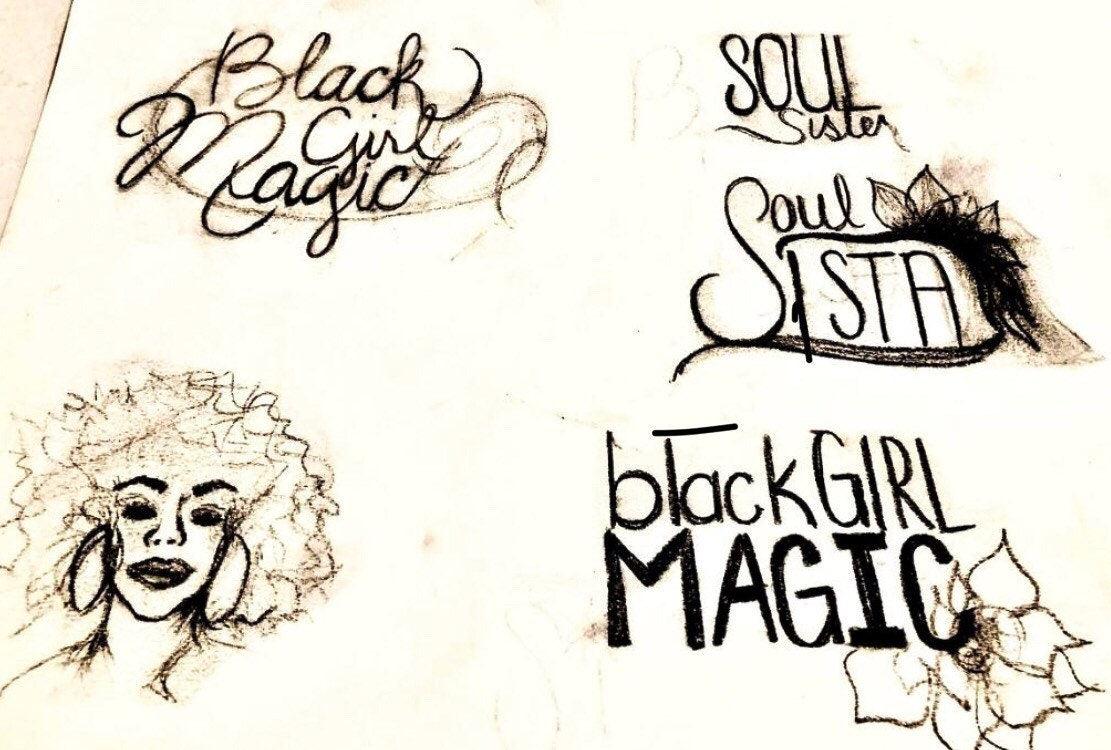 Black
Girl
Magic
SOUL
Sister
Soul
SISTA
black GIRL
MAGIC